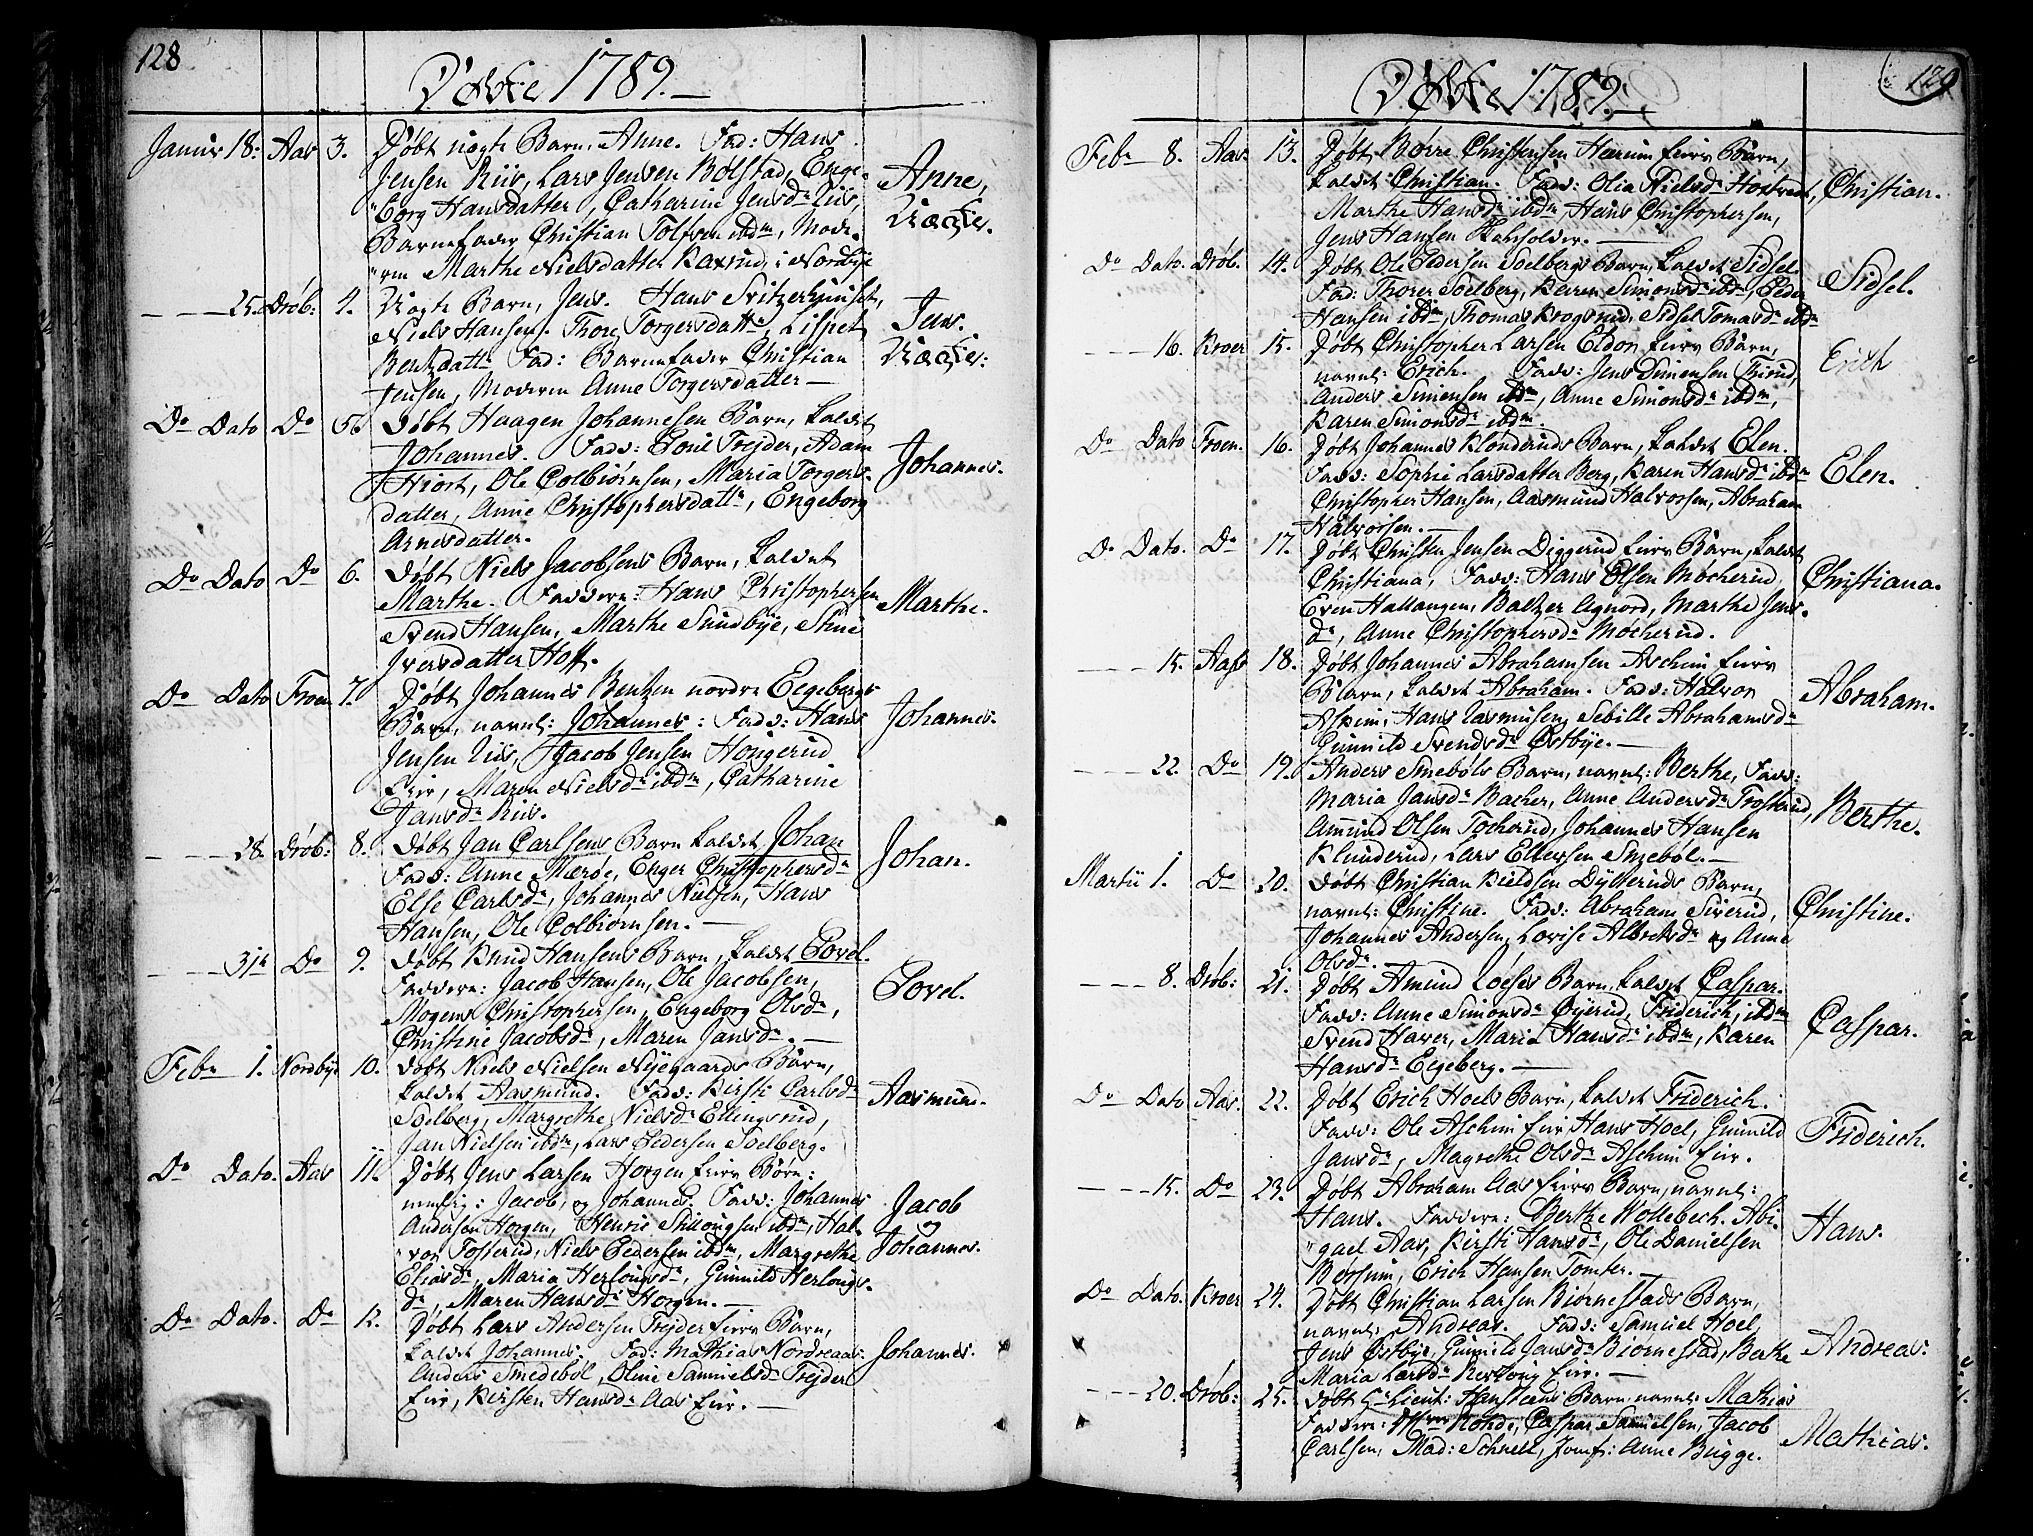 128
Døbte 1789.
Januar 18. Aas 3. Døbt uægte Barn, Anne. Fad: Hans
Jensen Riis, Lars Jensen Bølstad, Enge-
borg Hansdatter, Catharine Jensdr Riis,
Barnefader Christian Tolfsen ibdm, Mode-
ren Marthe Nielsdatter Kaxrud, i Nordbye
Anne,
Uægte.
25. Drøb: 4. Uægte Barn, Jens. Hans
Niels Hansen. Thore Torgersdattr, Lispet
Bentsdattr Fad: Barnefader Christian
Jensen, Moderen Anne Torgersdatter
Jens.
Uægte:
Do Dato Do 5. Døbt Haagen Johannesen Barn, kaldet
Johannes. Fadd: Poul Trejder, Adam
Hiort, Ole Colbiörnsen, Maria Torgers-
datter, Anne Christophersdattr, Engeborg
Arnesdatter.
Johannes.
Do Dato Do 6. Døbt Niels Jacobsens Barn, kaldet
Marthe. Faddere: Hans Christophersen
Svend Hansen, Marthe Sundbye, Stine
Iversdatter Hoff.
Marthe.
Do Dato Froen 7. Døbt Johannes Bentzen nordre Eegebergs
Barn, navnl: Johannes: Fadd: Hans
Jensen Riis, Jacob Jensen Hougerud
Eier, Maren Nielsdr ibdm, Catharine
Jansdr Riis.
Johannes.
28. Drøb: 8. Døbt Jan Carlsens Barn kaldet Johan
Fadd: Anne Mærøe, Enger Christophersdr
Else Carlsdr, Johannes Nielsen, Hans
Hansen, Ole Colbiornsen.
Johan.
31te Do 9. Døbt Knud Hansens Barn, kaldet Povel.
Faddere: Jacob Hansen, Ole Jacobsen,
Mogens Christophersen, Engeborg Olsdr,
Christine Jacobsdr, Maren Jansdr.
Povel.
Febr 1. Nordbye 10. Døbt Niels Nielsen Nyegaards Barn,
kaldet Aasmund. Fadd: Kersti Carlsdr
Solberg, Margrethe Nielsdr Ellingsrud,
Jan Nielsen ibdm, Lars Pedersen Solberg.
Aasmund.
Do Dato. Aas 11. Døbt Jens Larsen Horgen Eiers Børn:
nemlig: Jacob, og Johannes. Fadd: Johannes
Andersen Horgen, Henric ibdm, Hal-
vor Fosterud, Niels Pedersen ibdm, Margrethe
Eliasdr, Maria Herlougsdr, Gunnild Herlougs-
dr, Maren Hansdr Horgen.
Jacob
og
Johannes.
Do Dato. Do 12. Døbt Lars Andersen Trejder Eiers Barn,
kaldet Johannes. Fad: Mathias Nordreaas
Anders Smedeböl, Oline Samuelsdr Trejder
Eier, Kirsten Hansdr Aas Eier.
Johannes.
129
Døbte 1789.
Febr 8. Aas. 13. Døbt Børre Christensen Harum Eiers Barn,
kaldet Christian. Fadd: Olia Nielsdr Hostvedt,
Marthe Hansdr ibdm, Hans Christophersen,
Jens Hansen Holsholder.
Christian.
Do Dato. Drøb. 14. Døbt Ole Pedersen Solbergs Barn, kaldet Sidsel.
Fad: Thorer Soelberg, Karen Simonsdr ibdm, Peder
Hansen ibdm, Thomas Krogsrud, Sidsel Tomasdr ibdm
Sidsel.
16. Kroer 15. Døbt Christopher Larsen Eldor Eiers Barn,
navnl: Erich. Fadd: Jens Simensen Thirud,
Anders Simensen ibdm, Anne Simonsdr ibdm,
Karen Simonsdr ibdm.
Erich
Do Dato Froen. 16. Døbt Johannes Klonderuds Barn, kaldet Elen.
Fadd: Sophie Larsdatter Berg, Karen Hansdr ibdm
Christopher Hansen, Aasmund Halvorsen, Abraham
Halvorsen.
Elen.
Do Dato. Do 17. Døbt Christen Jensen Diggerud Eiers Barn, kaldet
Christiana, Fadd: Hans Olsen Möcherud,
Even Hallangen, Baltzer Agnord, Marthe Jens-
dr, Anne Christophersdr Möcherud.
Christiana.
15. Aas 18. Døbt Johannes Abrahamsen Aschim Eiers
Barn, kaldet Abraham. Fadd: Halvor
Aschim, Hans Rasmusen, Sebille Abrahamsdr
Gunnild Svendsdr Østbye.
Abraham.
22. Do 19. Anders Smebøls Barn, navnl: Berthe, Fadd:
Maria Jansdr Bacher, Anne Andersdr Frosterud,
Amund Olsen Tocherud, Johannes Hansen
Klunderud, Lars Ellevsen Smebøl.
Berthe.
Martii 1. Do 20. Døbt Christian Kieldsen Dÿsteruds Barn,
navnl: Christine. Fadd: Abraham Siverud,
Johannes Andersen, Lovise Albretsdr og Anne
Olsdr.
Christine.
8. Drøb: 21. Døbt Amund Loeses Barn, kaldet Caspar.
Fadd: Anne Simonsdr Øyerud, Friderich ibdm
Svend Haver, Maria Hansdr ibdm, Karen
Hansdr Eegeberg.
Caspar.
Do Dato Aas. 22. Døbt Erich Hoels Barn, kaldet Friderich.
Fadd: Ole Aschim Eier, Hans Hoel, Gunnild
Jansdr, Magrethe Olsdr Aschim Eier.
Friderich.
15. Do 23. Døbt Abraham Aas Eiers Barn, navnl:
Hans. Faddere: Berthe Wollebech. Abi-
gael Aas, Kersti Hansdr, Ole Danielsen
Berrum, Erich Hansen Tomter.
Hans.
Do Dato. Kroer 24. Døbt Christian Larsen Biornestads Barn,
navnl: Andreas. Fadd: Samuel Hoel,
Jens Østbye, Gunnild Jansdr Biornestad, Berthe
Maria Larsdr Eier.
Andreas.
20. Drøb: 25. Døbt Pr Lieut: Hansteens Barn navnl: Mathias
Faddere: Caspar Samuelsen, Jacob
Carlsen, Mad: Schnell, Jomf: Anne Bugge.
Mathias.